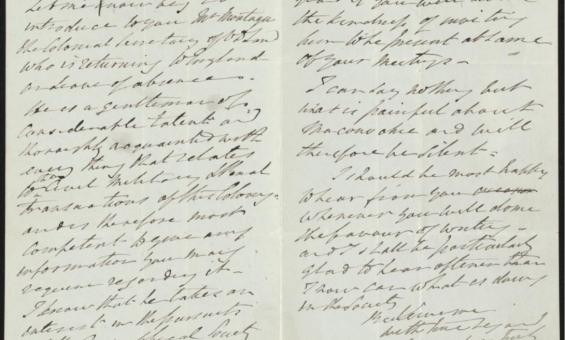 Let me now beg to
introduce to you Mr Montagu
the Colonial Secretary of V. D. Land
who is returning to England
on leave of absence.
He is a gentleman of
considerable talent and
thoroughly acquainted with
every thing that relates
to the Civil Military & Penal
transactions of this Colony
and is therefore most
competent to give any
information you may
require regarding it.
I know that he takes an
interest in the pursuits
Society
the kindness of inviting
him to be present at some
of your Meetings.
I can say nothing but
what is painful about
Maconochie and will
therefore be silent.
I should be most happy
to hear from you
whenever you will do me
the favour of writing
and I shall be particularly
glad to hear oftener than
I now can what is doing
in the Society
Believe me
with true regard